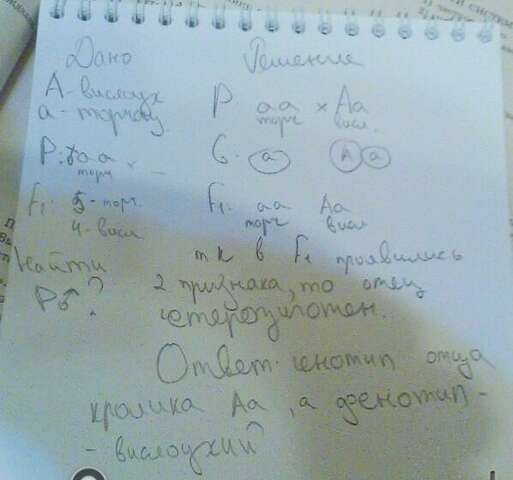 Дано
Решение
А - вислоух
а - торчат
Р аа × Аа
торч висл.
Р: ♀аа × -
торч
G: а А а
F₁: 5 - торч.
4 - висл
F₁: аа Аа
торч висл
Найти
Р♂?
т к в F₁ проявились
2 признака, то отец
гетерозиготен.
Ответ: генотип отца
кролика Аа, а фенотип -
- вислоухий